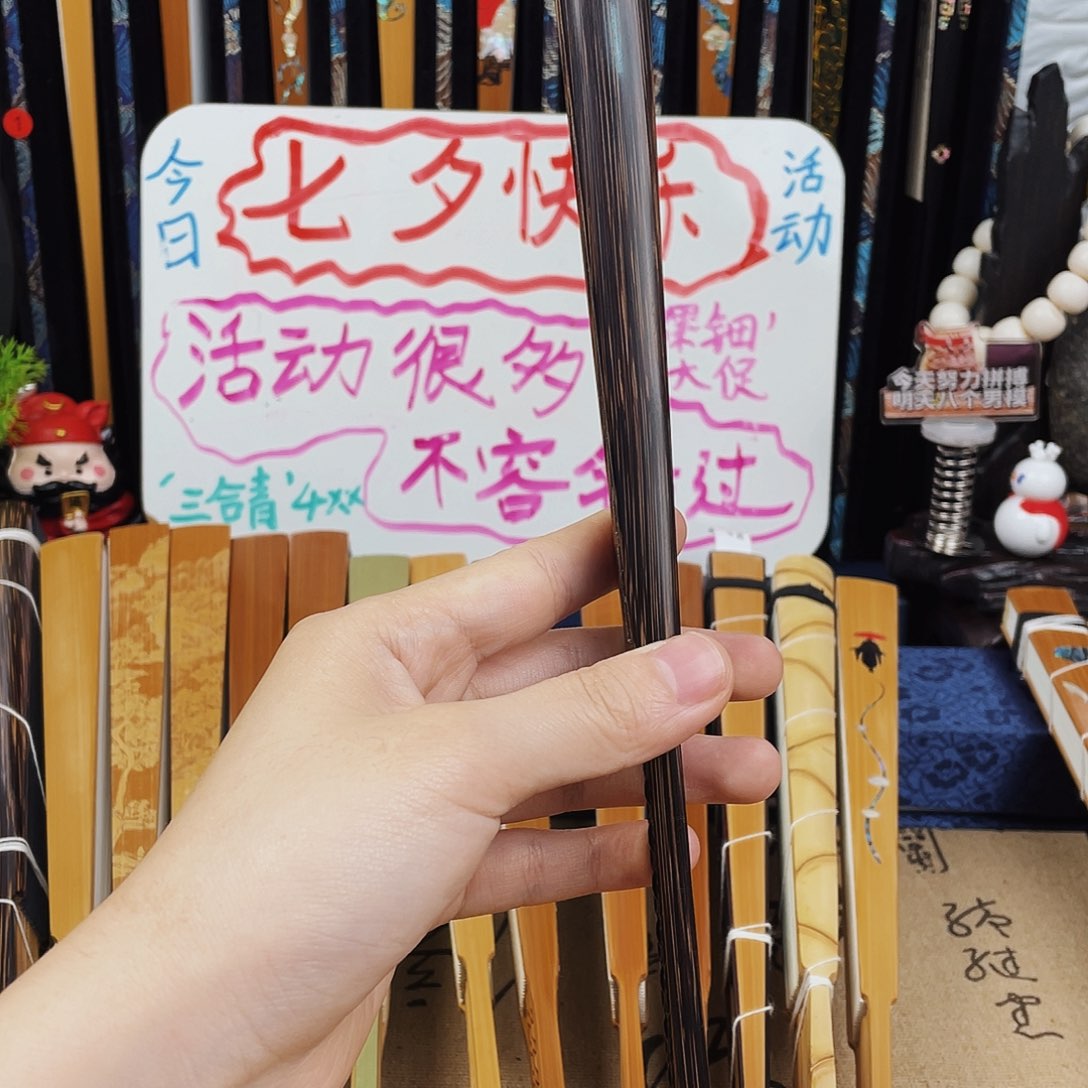 今日
七夕快乐
活动
活动很多
螺钿'
大促
不容错过
'三合青'4xx
今天努力拼搏
明天八个男模